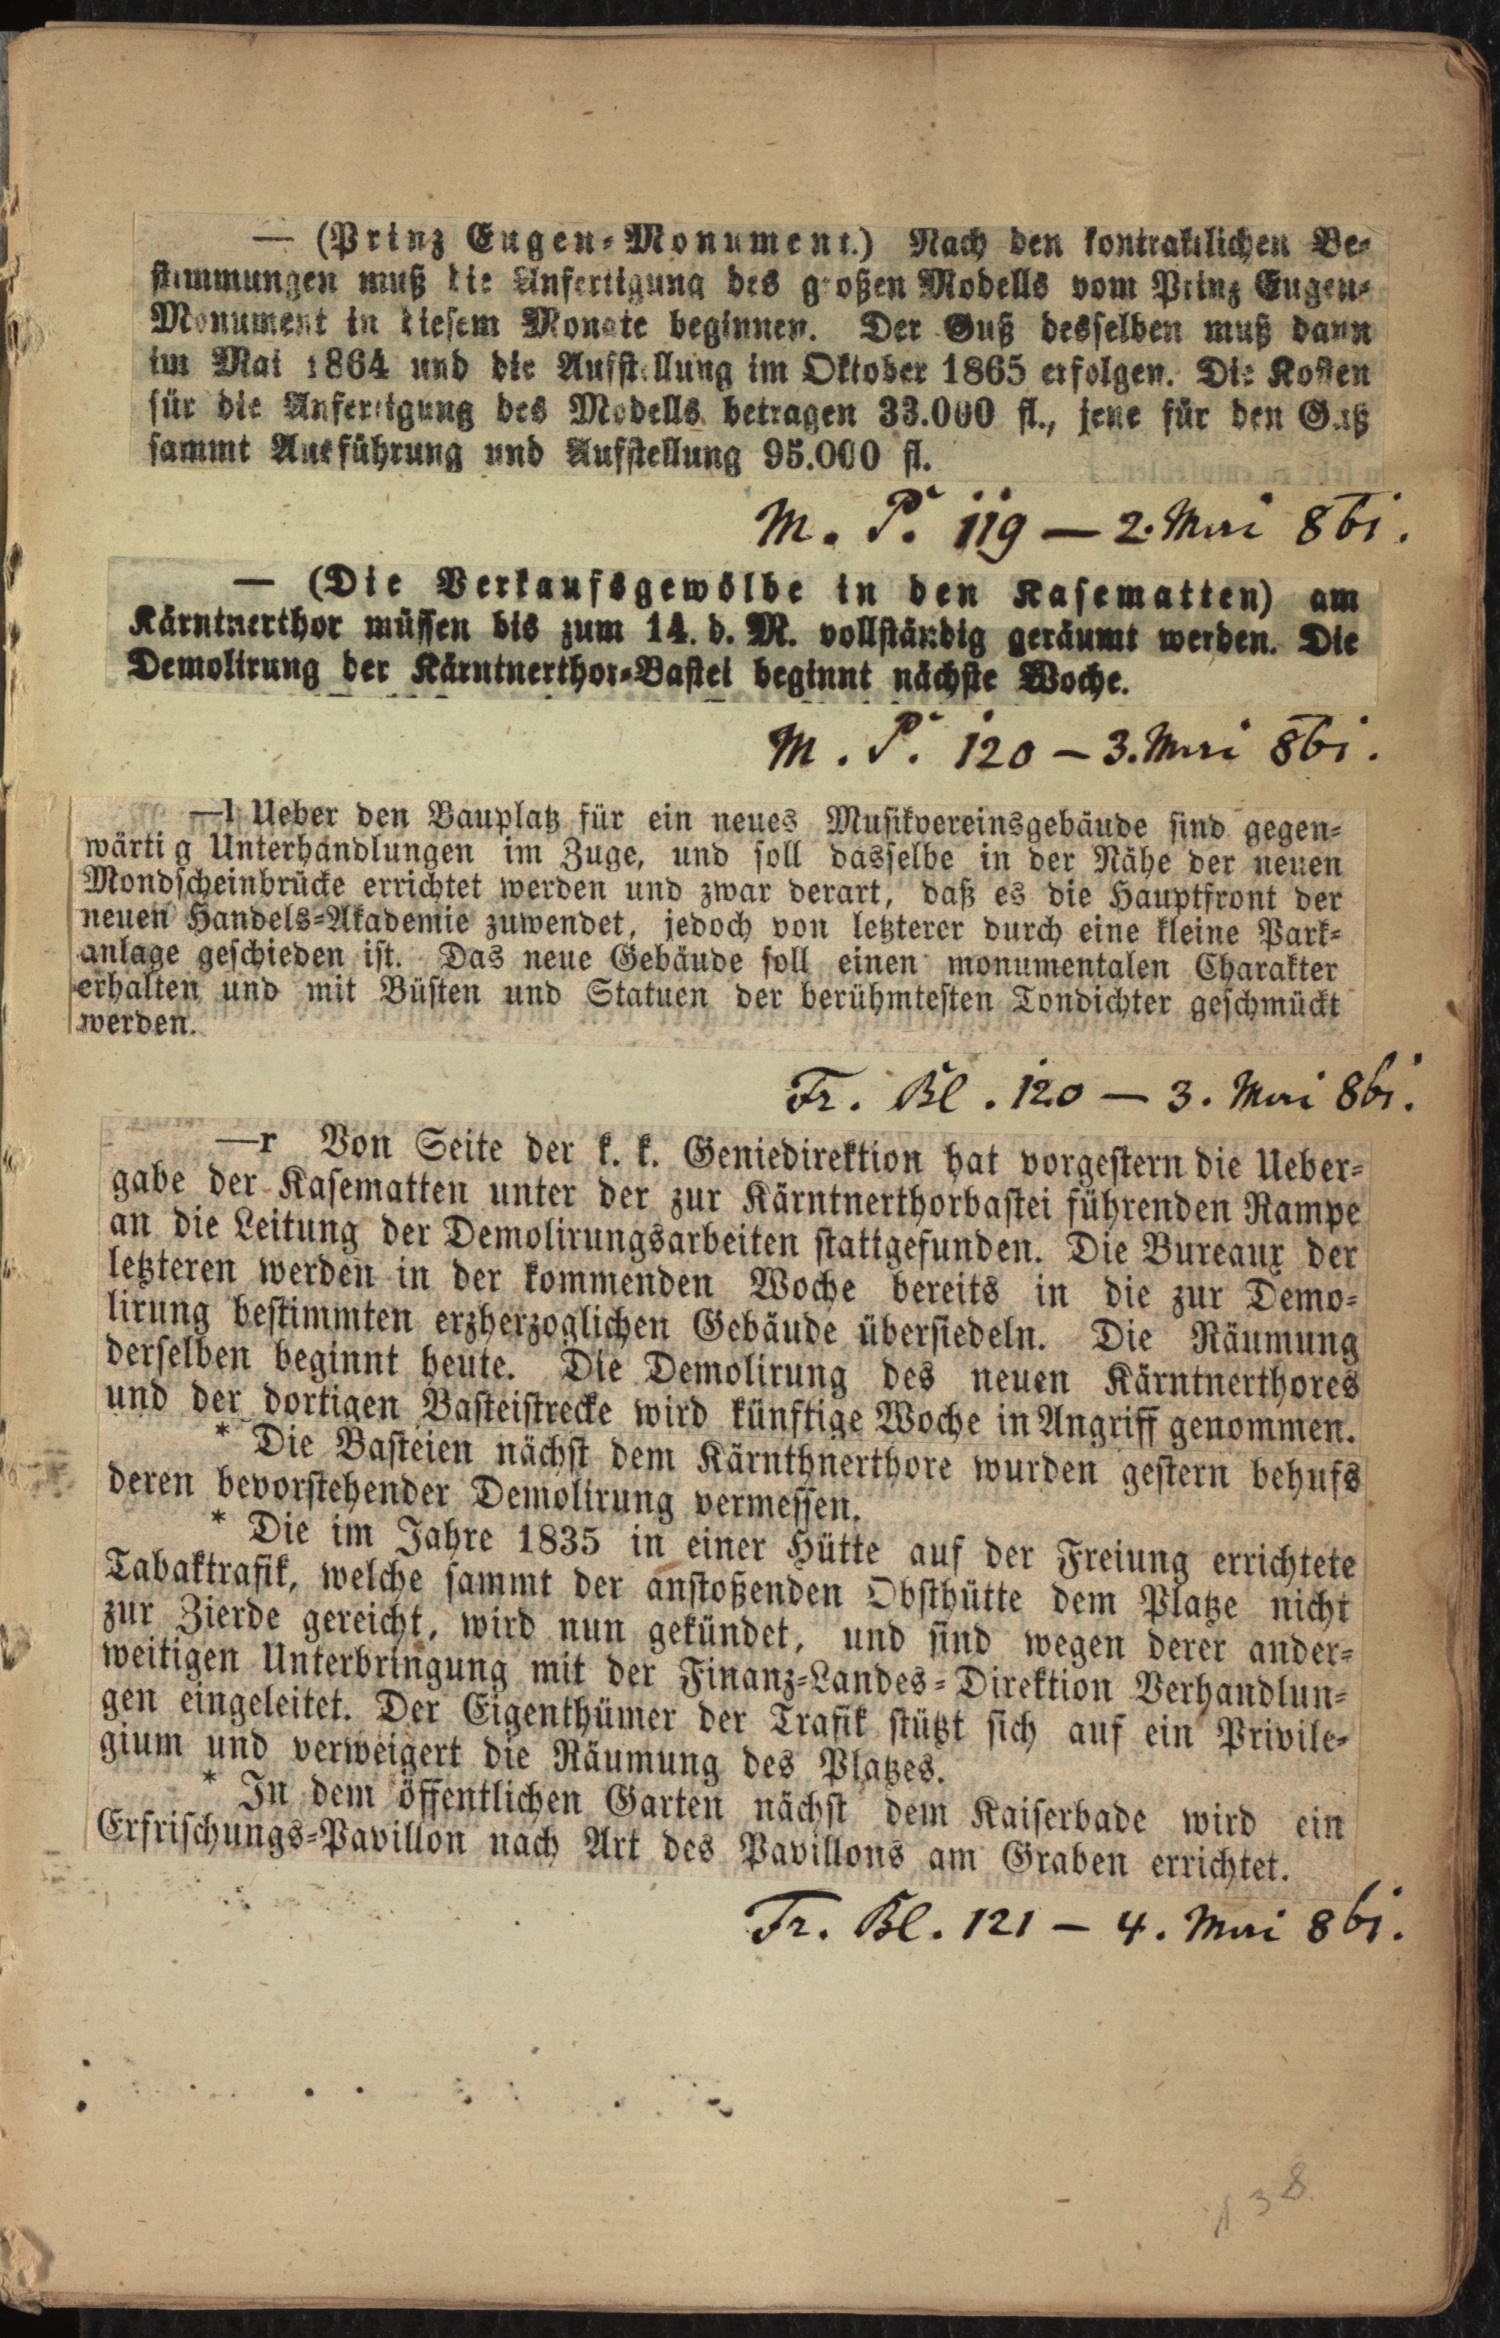 — (Prinz Eugen-Monument.) Nach den kontraktlichen Be-
stimmungen muß die Anfertigung des großen Modells vom Prinz Eugen-
Monument in diesem Monate beginnen. Der Guß desselben muß dann
im Mai 1864 und die Aufstellung im Oktober 1865 erfolgen. Die Kosten
für die Anfertigung des Modells betragen 33.000 fl., jene für den Guß
sammt Ausführung und Aufstellung 95.000 fl.
M. P. 119 — 2. Mai 861.
— (Die Verkaufsgewölbe in den Kasematten) am
Kärntnerthor müssen bis zum 14. d. M. vollständig geräumt werden. Die
Demolirung der Kärntnerthor-Bastei beginnt nächste Woche.
M. P. 120 — 3. Mai 861.
—l Ueber den Bauplatz für ein neues Musikvereinsgebäude sind gegen-
wärtig Unterhandlungen im Zuge, und soll dasselbe in der Nähe der neuen
Mondscheinbrücke errichtet werden und zwar derart, daß es die Hauptfront der
neuen Handels-Akademie zuwendet, jedoch von letzterer durch eine kleine Park-
anlage geschieden ist. Das neue Gebäude soll einen monumentalen Charakter
erhalten und mit Büsten und Statuen der berühmtesten Tondichter geschmückt
werden.
Fr. Bl. 120 — 3. Mai 861.
—r Von Seite der k. k. Geniedirektion hat vorgestern die Ueber-
gabe der Kasematten unter der zur Kärntnerthorbastei führenden Rampe
an die Leitung der Demolirungsarbeiten stattgefunden. Die Bureaux der
letzteren werden in der kommenden Woche bereits in die zur Demo-
lirung bestimmten erzherzoglichen Gebäude übersiedeln. Die Räumung
derselben beginnt heute. Die Demolirung des neuen Kärntnerthores
und der dortigen Basteistrecke wird künftige Woche in Angriff genommen.
* Die Basteien nächst dem Kärnthnerthore wurden gestern behufs
deren bevorstehender Demolirung vermessen.
* Die im Jahre 1835 in einer Hütte auf der Freiung errichtete
Tabaktrafik, welche sammt der anstoßenden Obsthütte dem Platze nicht
zur Zierde gereicht, wird nun gekündet, und sind wegen derer ander-
weitigen Unterbringung mit der Finanz-Landes-Direktion Verhandlun-
gen eingeleitet. Der Eigenthümer der Trafik stützt sich auf ein Privile-
gium und verweigert die Räumung des Platzes.
* In dem öffentlichen Garten nächst dem Kaiserbade wird ein
Erfrischungs-Pavillon nach Art des Pavillons am Graben errichtet.
Fr. Bl. 121 — 4. Mai 861.
138